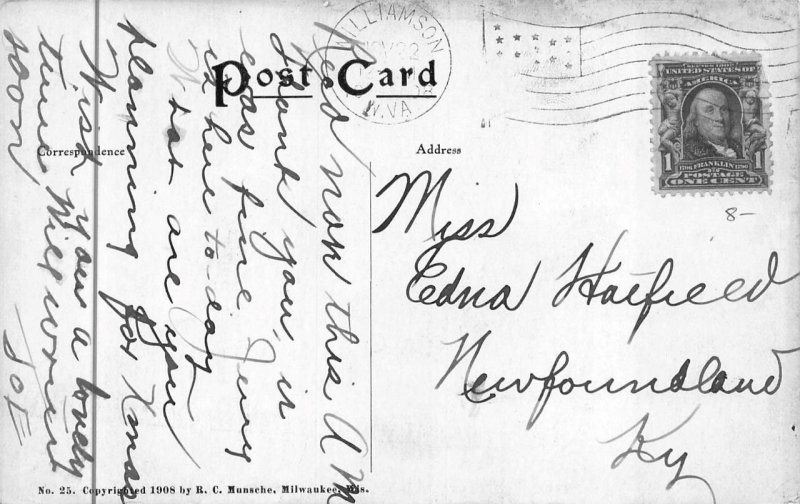 Post Card
WILLIAMSON
NOV 22
W.VA
UNITED STATES OF
AMERICA
1 FRANKLIN 1
POSTAGE
ONE CENT
Correspondence
Address
8-
Miss
Edna Hatfield
Newfoundland
Ky
now this A M
you, is
fine
is here to-day
What are you
planning for Xmas
Wish you a lovely
time, Will
soon
Joe
No. 25. Copyrighted 1908 by R. C. Munsche, Milwaukee, Wis.